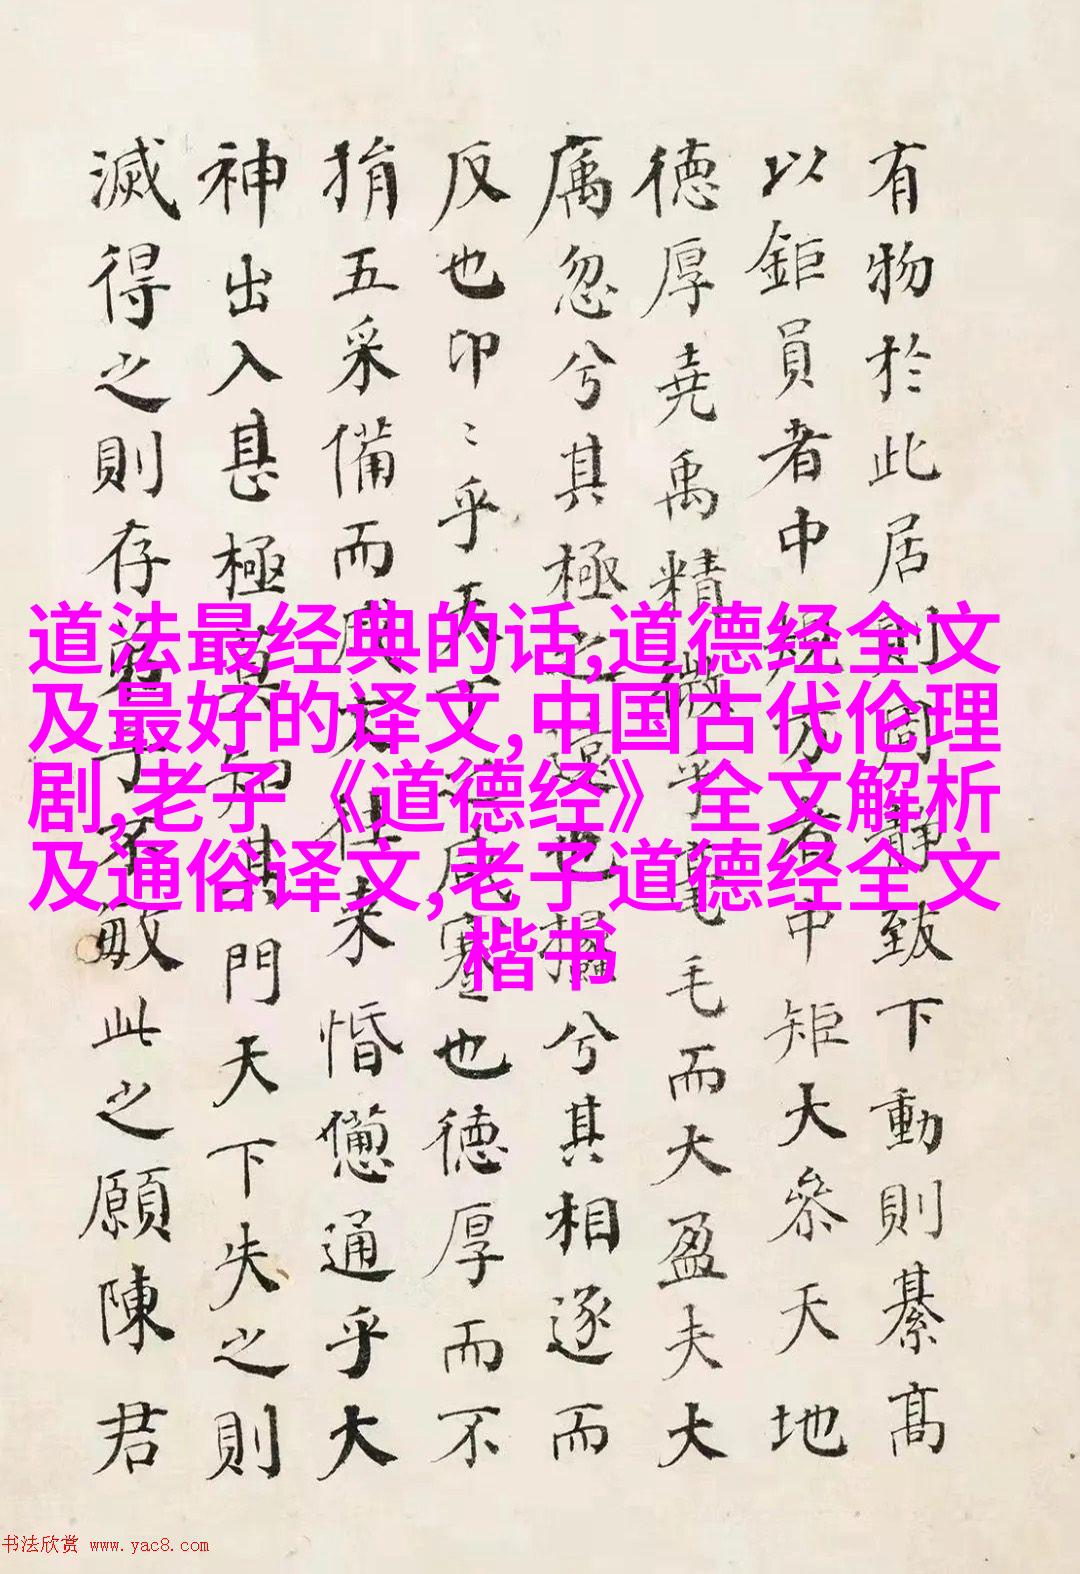 有物於此居則周靜致下動則綦高
以鉅員者中規方者中矩大參天地
德厚堯禹精微乎毫毛而大盈夫大
忽兮其極之遠也攭兮其相逐而
反也卬〻乎天下之咸蹇也德厚而不
捐五采備而成文往來惛憊通乎大
神出入甚極莫知其門天下失之則
滅得之則存弟子不敏此之願陳君
道法最经典的话,道德经全文
及最好的译文,中国古代伦理
剧,老子《道德经》全文解析
及通俗译文,老子道德经全文
楷书
书法欣赏 www.yac8.com